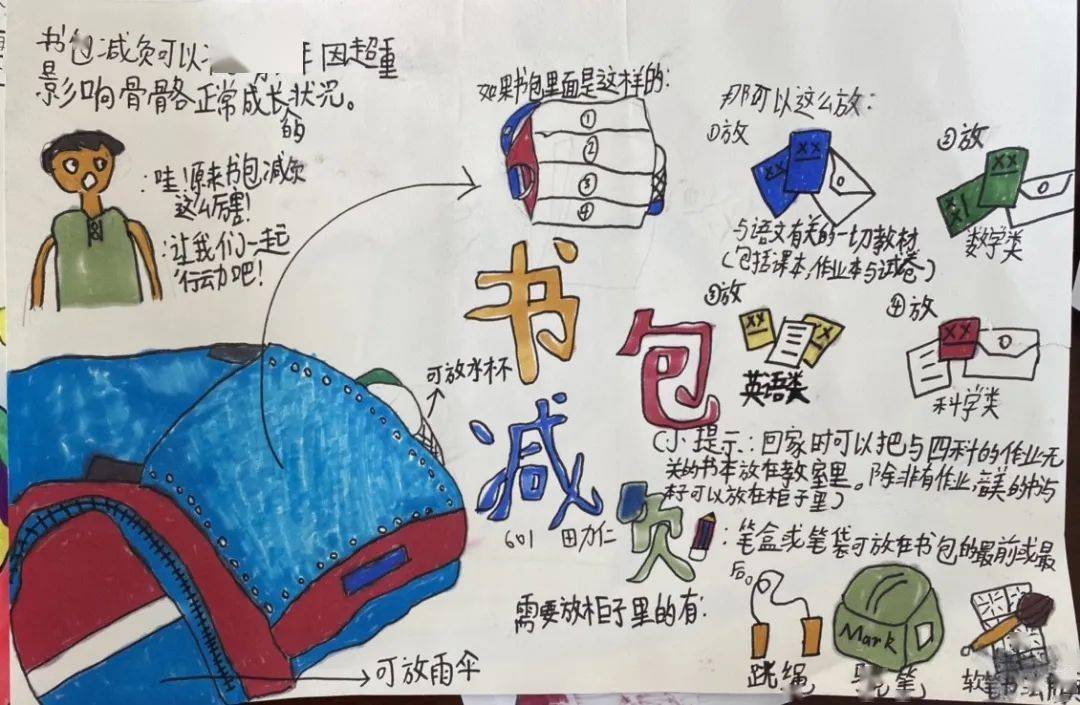 书包减负可以
因超重
影响骨骼正常成长的状况。
:哇!原来书包减负
这么厉害!
:让我们一起
行动吧!
如果书包里面是这样的:
①
②
③
④
那可以这么放:
①放
XX
XX
与语文有关的一切教材
(包括课本,作业本与试卷)
②放
XX
XX
数学类
③放
XX
XX
英语类
④放
XX
科学类
书包减负
可放水杯
可放雨伞
601 田力仁
(小提示:回家时可以把与四科的作业无
关的书本放在教室里。除非有作业,音美的书与
本子可以放在柜子里)
:笔盒或笔袋可放在书包的最前或最
后。
需要放柜子里的有:
跳绳
Mark
笔
软笔书法